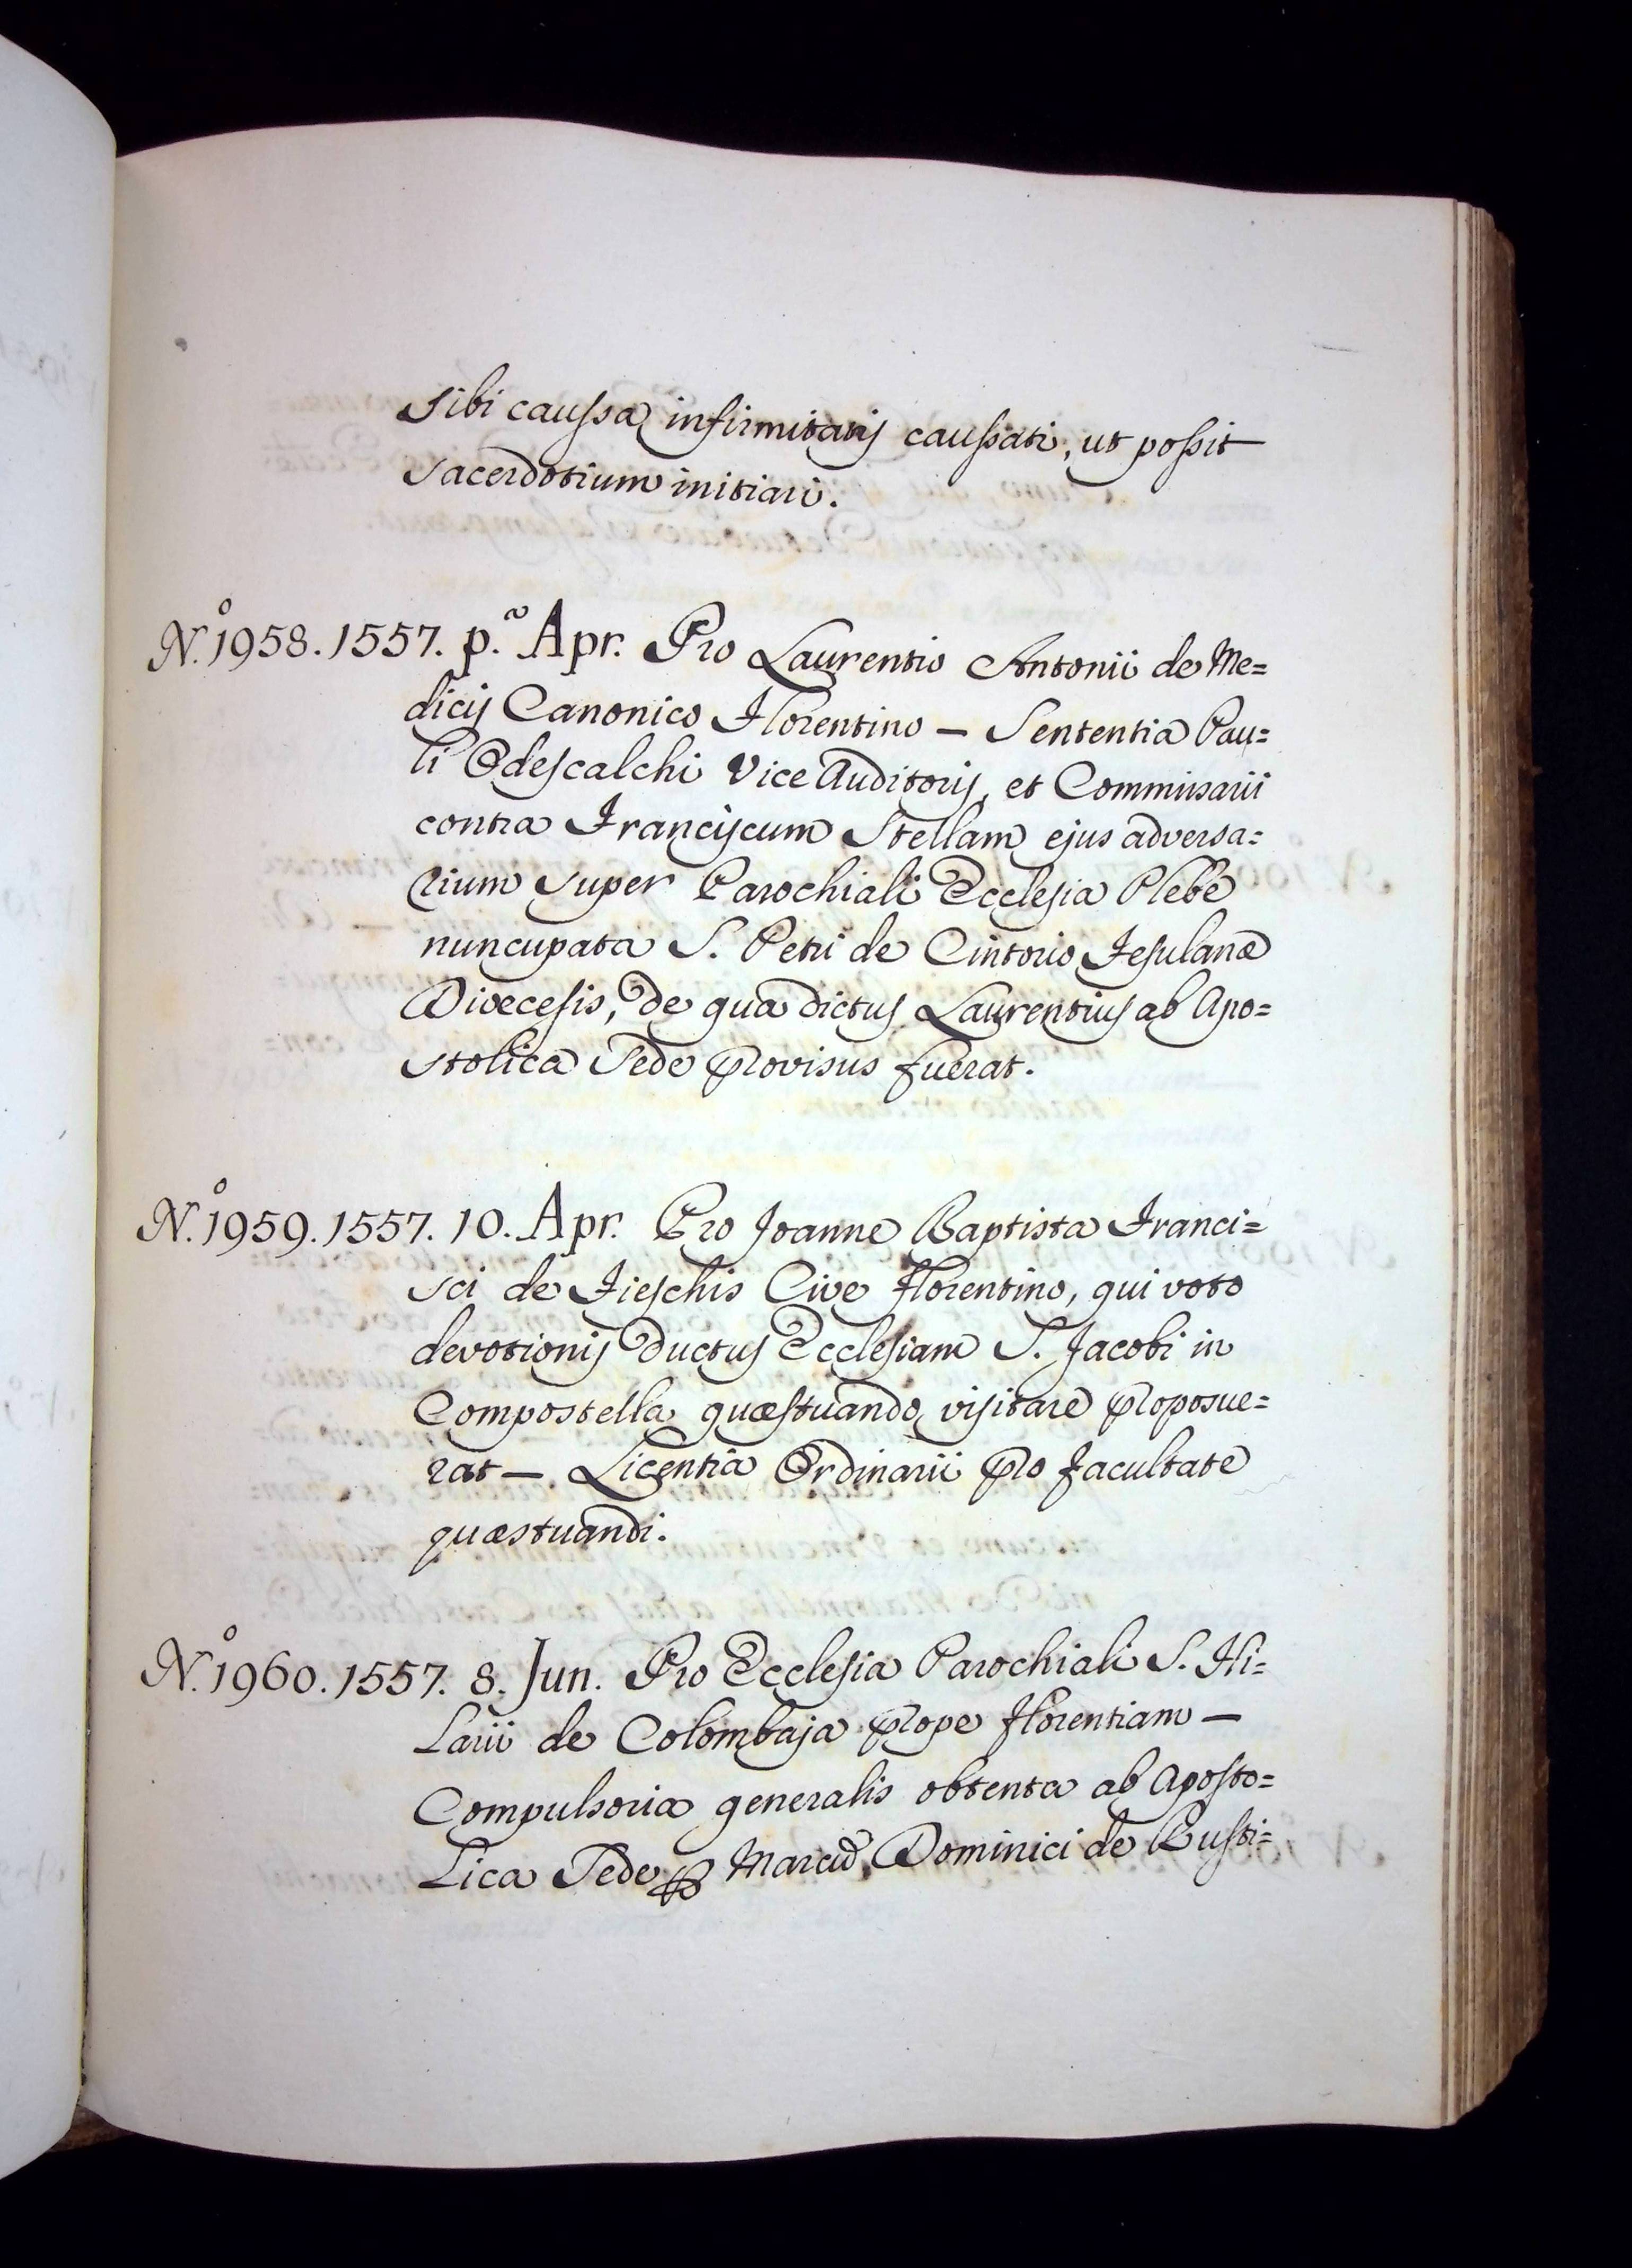 sibi caussa infirmitatis caussati, ut possit
sacerdotium initiari.
N.º 1958. 1557. p.ª Apr. Pro Laurentio Antonii de Me=
dicis Canonico Florentino — Sententia Pau=
li Odescalchi Vice Auditoris, et Commissarii
contra Franciscum Stellam ejus adversa=
rium super Parochiali Ecclesia Plebe
nuncupata S. Petri de Cintorio Fesulanæ
Diœcesis, de qua dictus Laurentius ab Apo=
stolica Sede provisus fuerat.
N.º 1959. 1557. 10. Apr. Pro Joanne Baptista Franci=
sci de Fieschis Cive Florentino, qui voto
devotionis ductus Ecclesiam S. Jacobi in
Compostella quæstuando visitare proposue=
rat — Licentia Ordinarii pro facultate
quæstuandi.
N.º 1960. 1557. 8. Jun. Pro Ecclesia Parochiali S. Hi=
larii de Colombaja prope Florentiam —
Compulsoria generalis obtenta ab Aposto=
lica Sede Dominici de Busti=